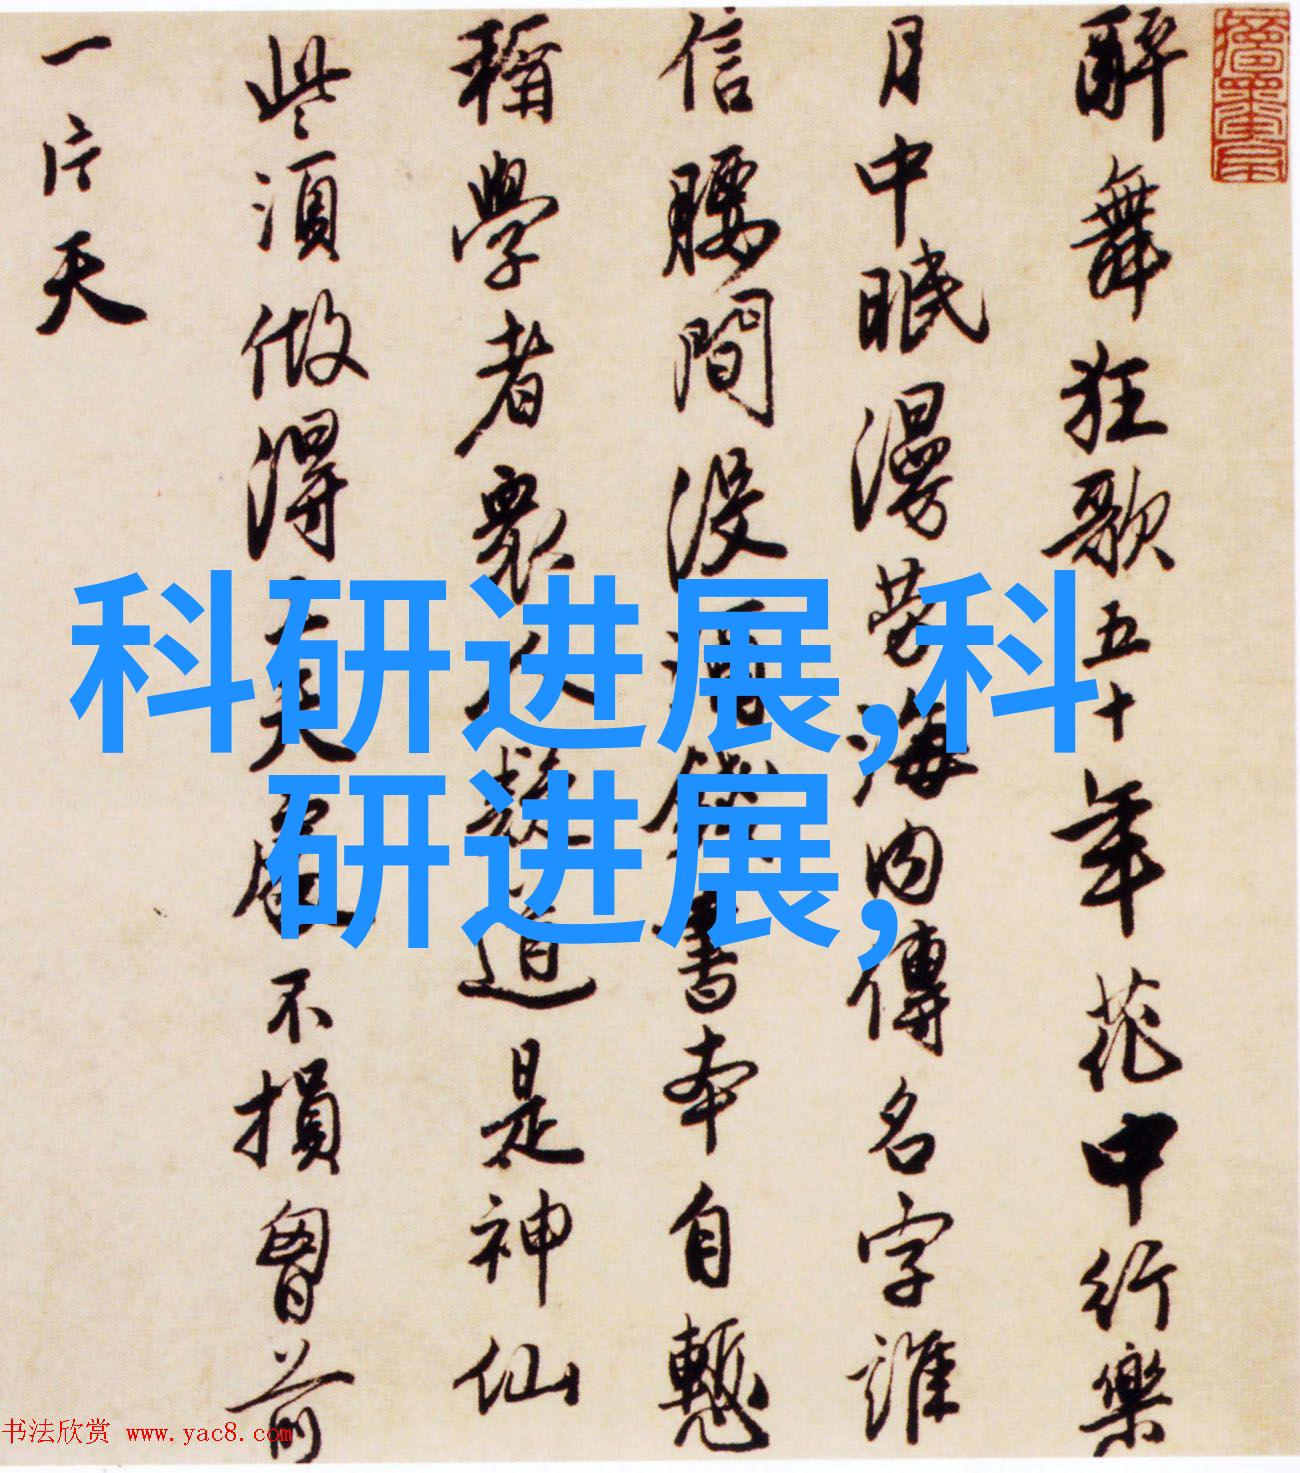 醉舞狂歌五十年花中行樂
月中眠漫勞海内傳名字誰
信腰間沒酒錢書本自慙
稱學者衆人疑道是神仙
些須做得工夫處不損胷前
一片天
科研进展,科
研进展,
书法欣赏 www.yac8.com